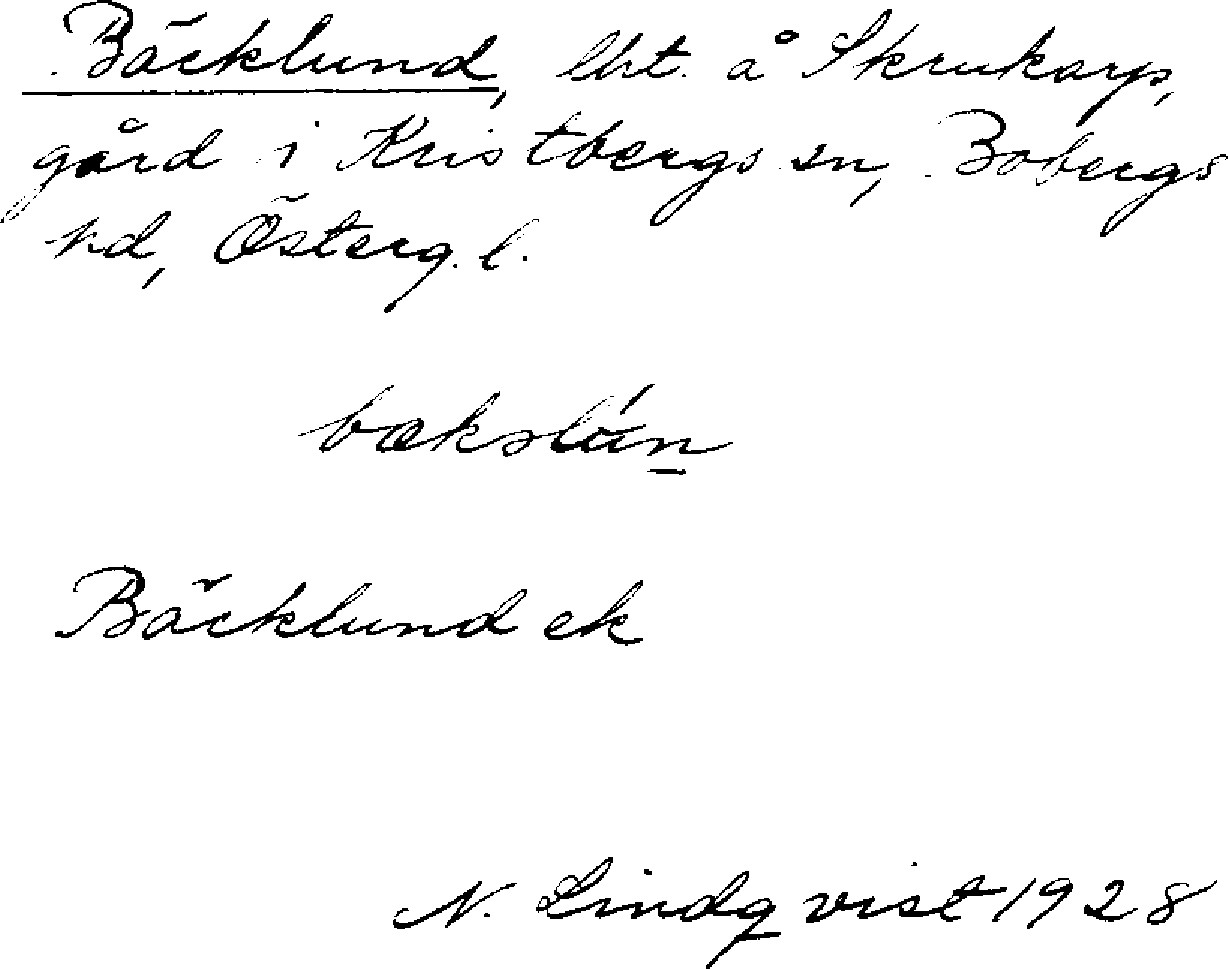 Bäcklund, lht. å Skrukarp,
gård i Kristbergs sn, Bobergs
hd, Österg. l.
Bäcklund ek
N. Lindqvist 1928